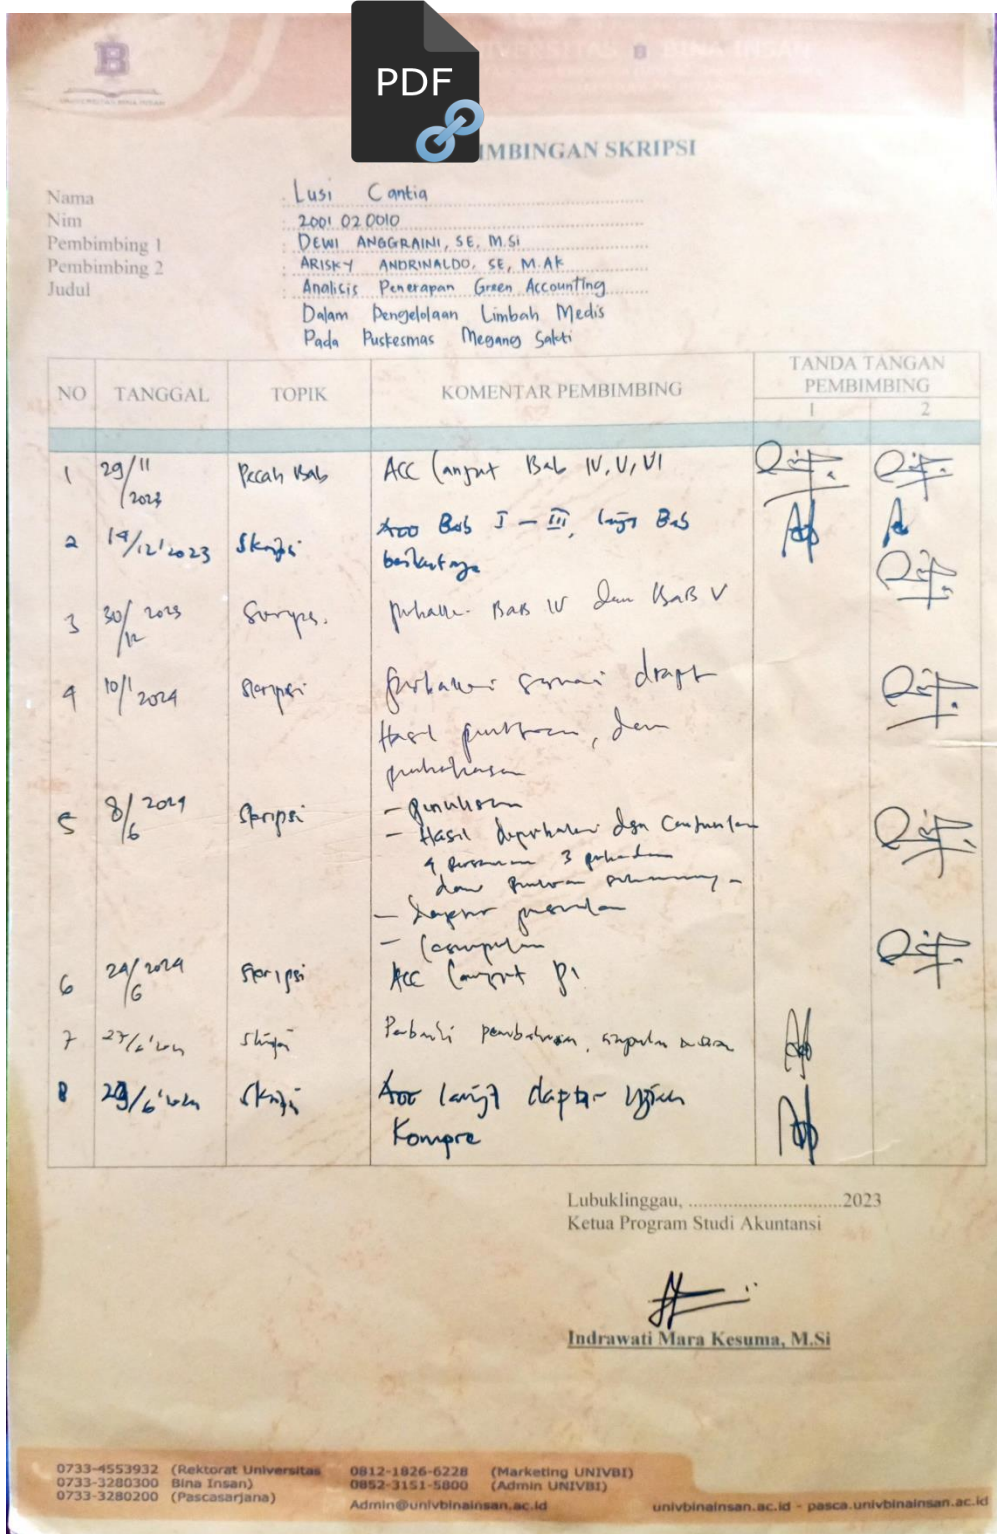 PDF
UNIVERSITAS BINA INSAN
IVERSITAS B BINA INSAN
IMBINGAN SKRIPSI
Nama : Lusi Cantia
Nim : 2001020010
Pembimbing 1 : DEWI ANGGRAINI, SE, M.Si
Pembimbing 2 : ARISKY ANDRINALDO, SE, M.AK
Judul : Analisis Penerapan Green Accounting
Dalam Pengelolaan Limbah Medis
Pada Puskesmas Megang Sakti
NO TANGGAL TOPIK KOMENTAR PEMBIMBING TANDA TANGAN PEMBIMBING
1 2
1 29/11/2023 Pecah Bab ACC Lanjut Bab IV, V, VI
2 14/12'2023 Skripsi Acc Bab I - III, lanjt Bab
berikutnya
3 30/12 2023 BAB IV dan BAB V
4 10/1 2024 Skripsi Perbaiki sesuai draft
Hasil, dan
pembahasan
5 8/6 2024 Skripsi - penulisan
- Hasil diperbaiki dgn
4 3
dan
- Daftar pustaka
- Kesimpulan
6 24/2024 6 Skripsi ACC Lanjut P1
7 27/6'2024 Skripsi Perbaiki pembahasan, simpulan saran
8 29/6'2024 Skripsi Acc lanjt daptar ujian
Kompre
Lubuklinggau, ..............................2023
Ketua Program Studi Akuntansi
Indrawati Mara Kesuma, M.Si
0733-4553932 (Rektorat Universitas 0812-1826-6228 (Marketing UNIVBI)
0733-3280300 Bina Insan) 0852-3151-5800 (Admin UNIVBI)
0733-3280200 (Pascasarjana)
Admin@univbinainsan.ac.id univbinainsan.ac.id - pasca.univbinainsan.ac.id